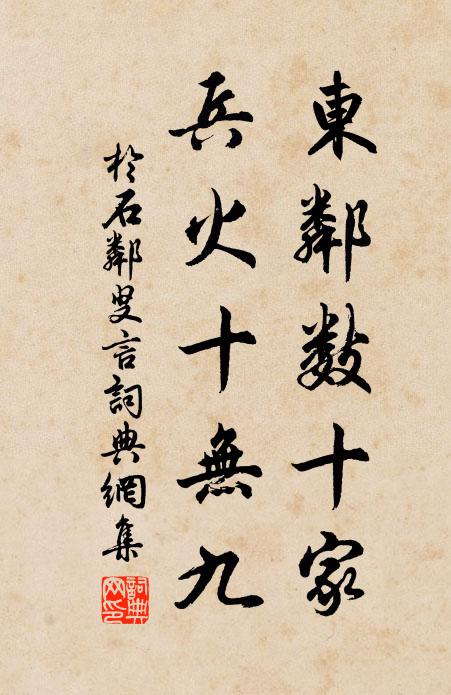 東鄰數十家
兵火十無九
於石鄰叟言詞典網集
詞典
网印